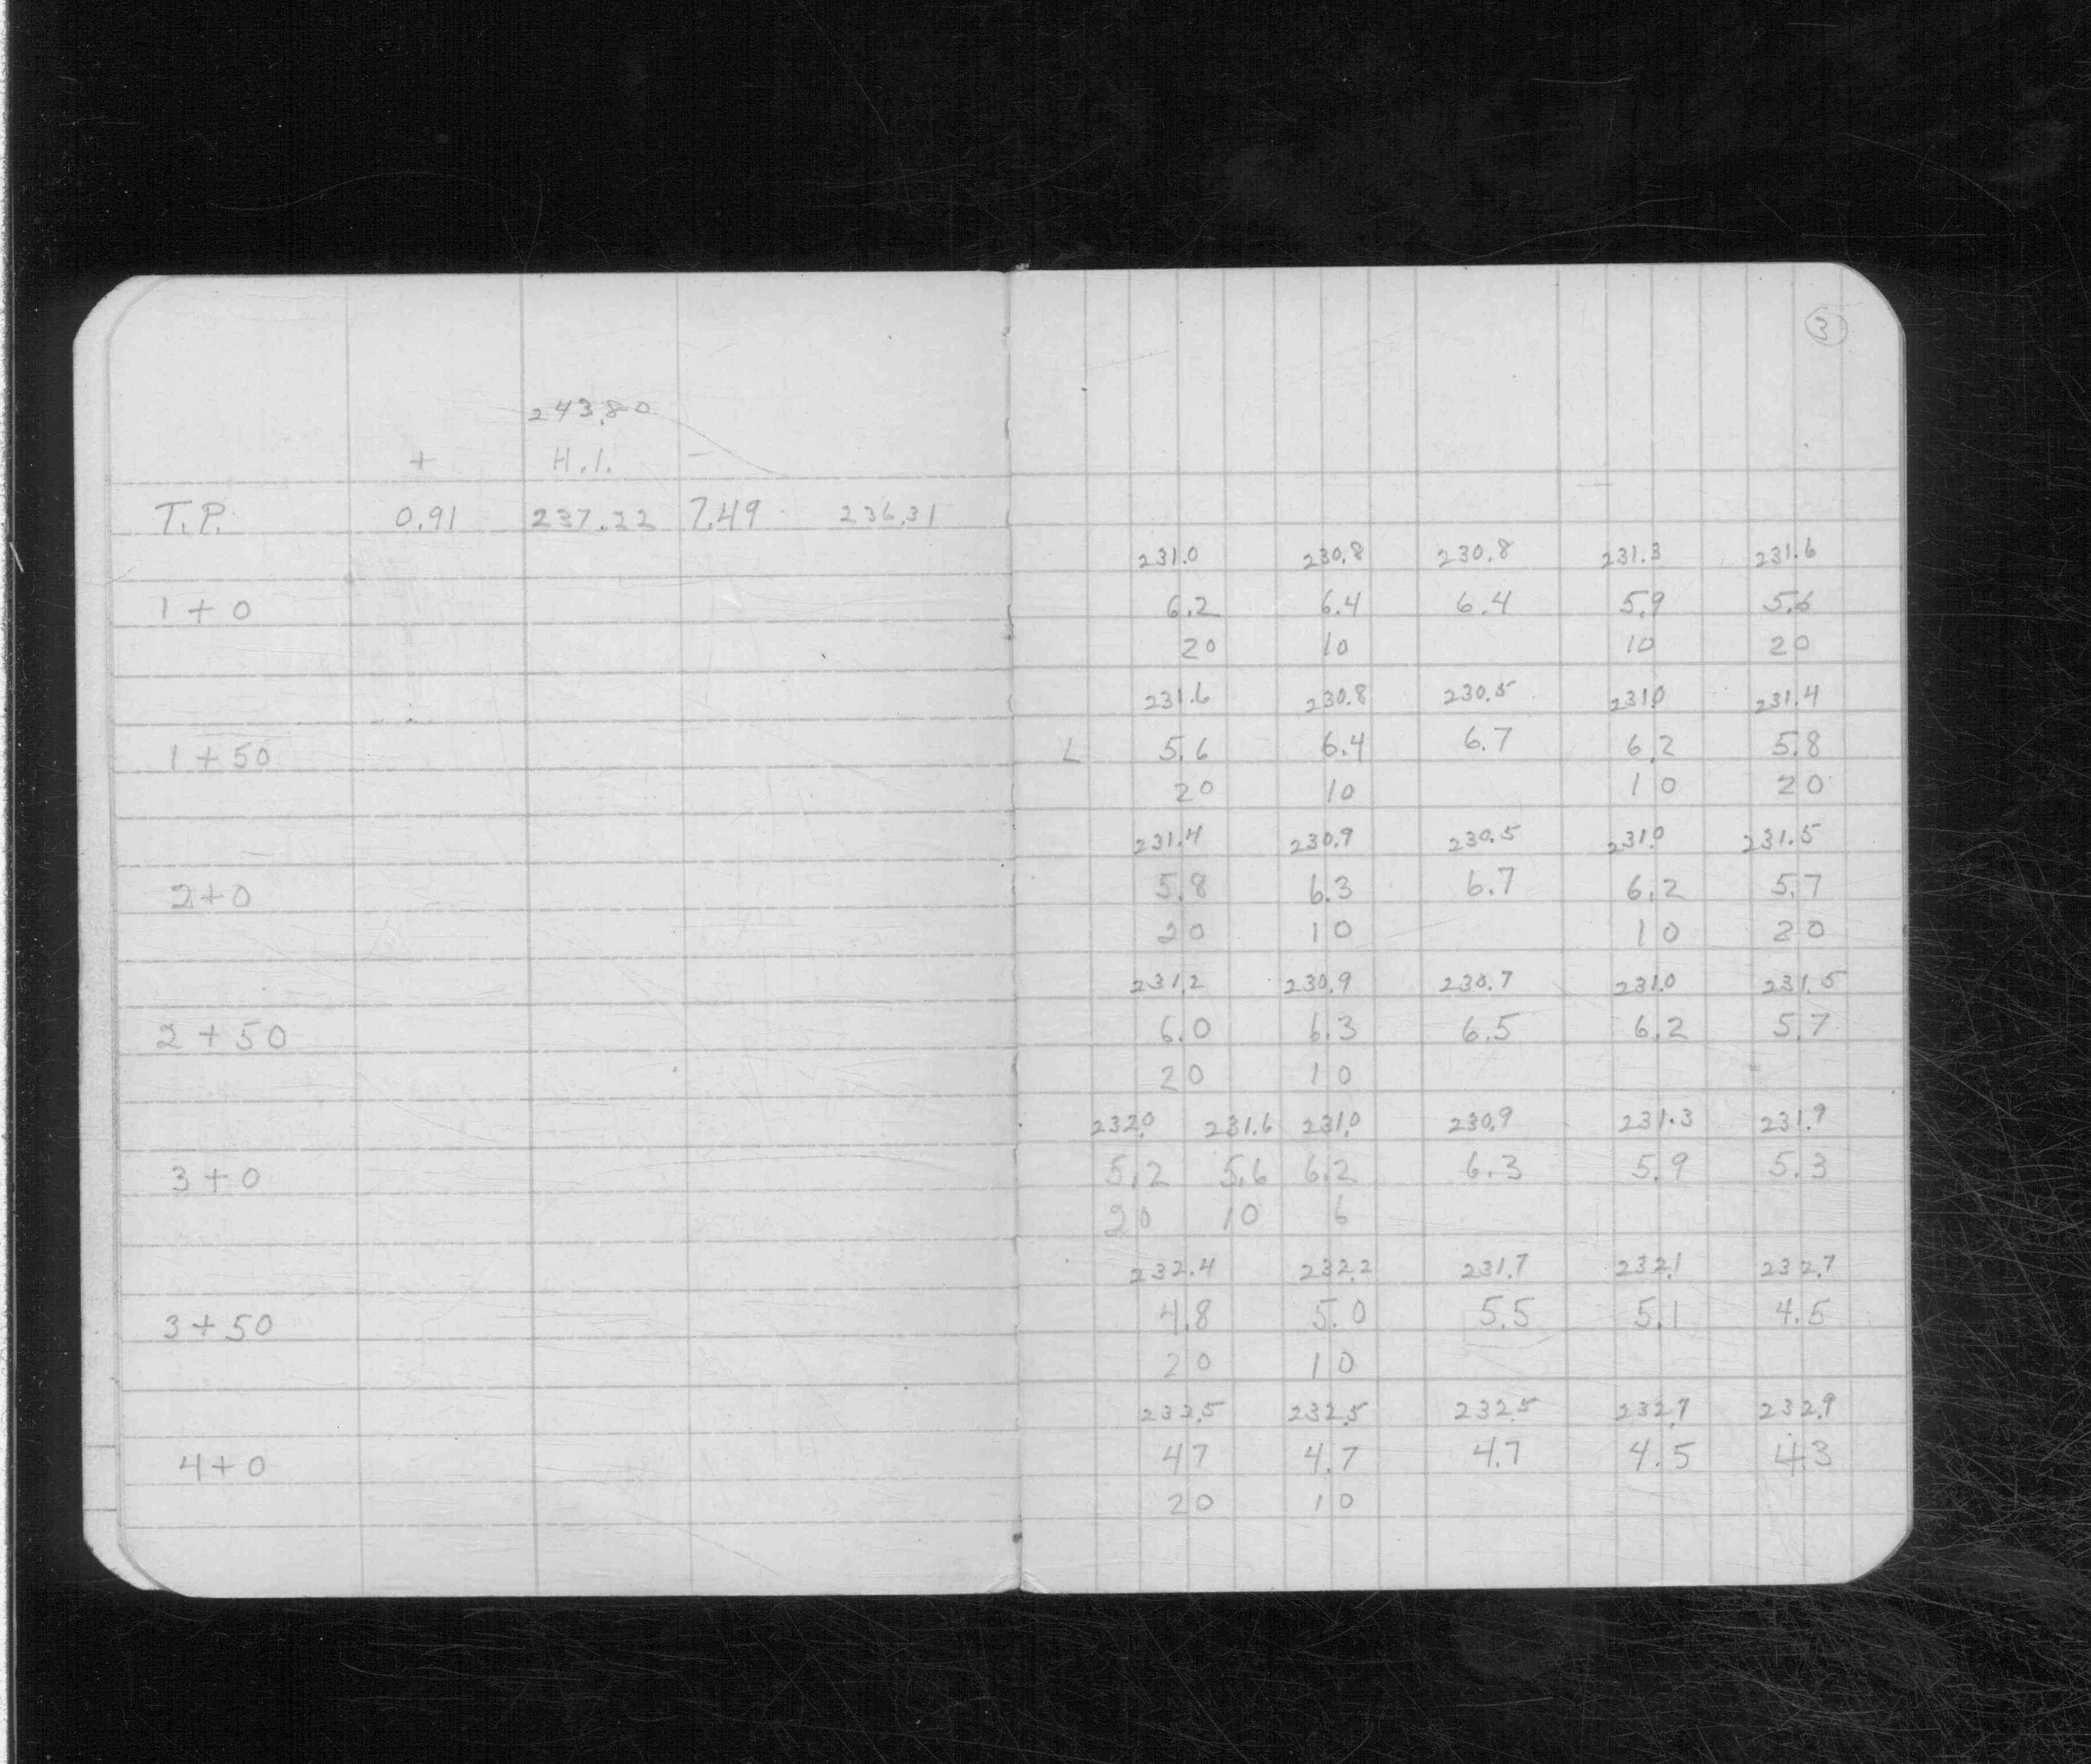 3
243.80
+ H.I. -
T.P. 0.91 237.22 7.49 236.31
231.0 230.8 230.8 231.3 231.6
1+0 6.2 6.4 6.4 5.9 5.6
20 10 10 20
231.6 230.8 230.5 231.0 231.4
1+50 L 5.6 6.4 6.7 6.2 5.8
20 10 10 20
231.4 230.9 230.5 231.0 231.5
2+0 5.8 6.3 6.7 6.2 5.7
20 10 10 20
231.2 230.9 230.7 231.0 231.5
2+50 6.0 6.3 6.5 6.2 5.7
20 10
232.0 231.6 231.0 230.9 231.3 231.9
3+0 5.2 5.6 6.2 6.3 5.9 5.3
20 10 6
232.4 232.2 231.7 232.1 232.7
3+50 4.8 5.0 5.5 5.1 4.5
20 10
232.5 232.5 232.5 232.7 232.9
4+0 47 4.7 4.7 4.5 4.3
20 10